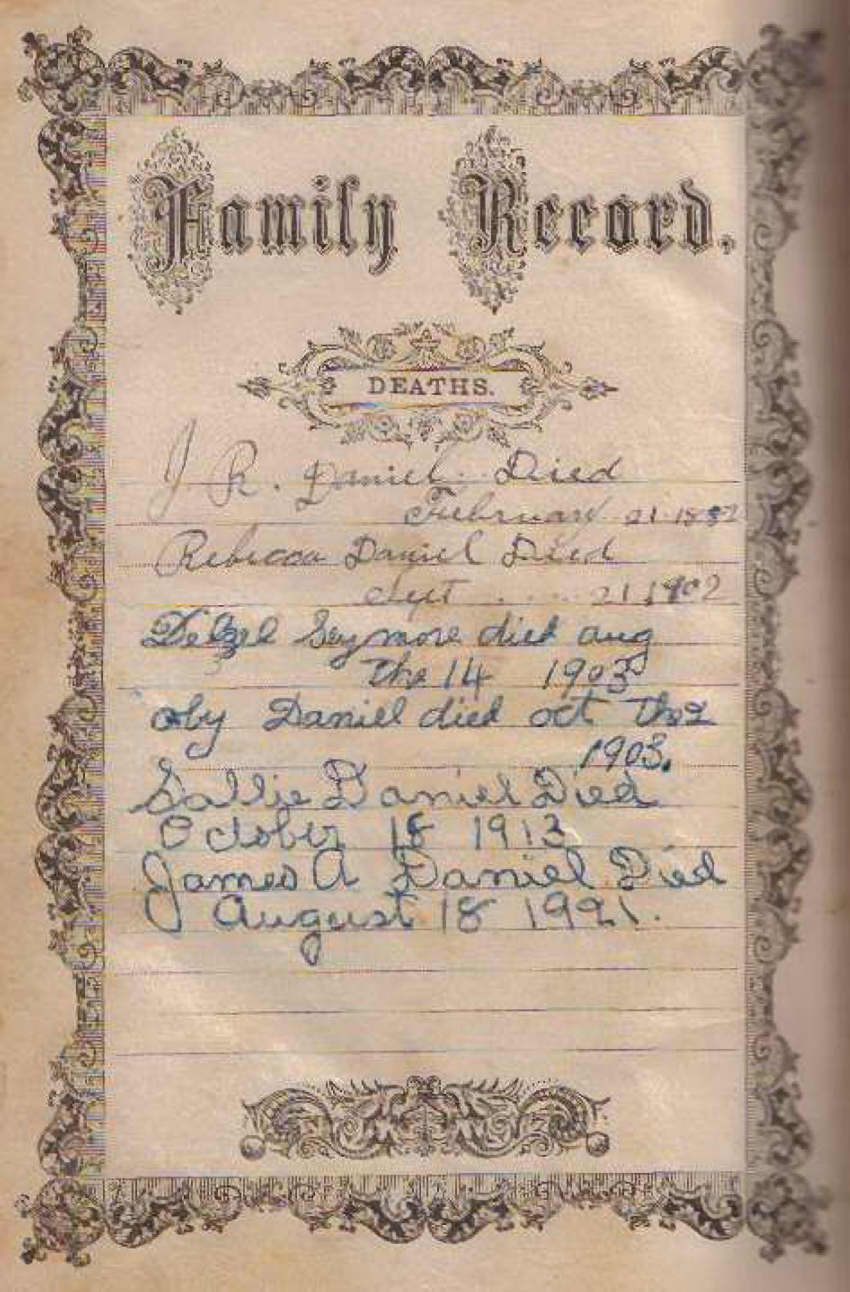 Family Record.
DEATHS.
J. R. Daniel. Died
February 21 1882
Rebecca Daniel Died
Sept .... 21 1902
Delzel Seymore died aug
the 14 1903
oby Daniell died oct the 2
1903.
Sallie Daniel Died
October 18 1913
James A Daniel Died
August 18 1921.